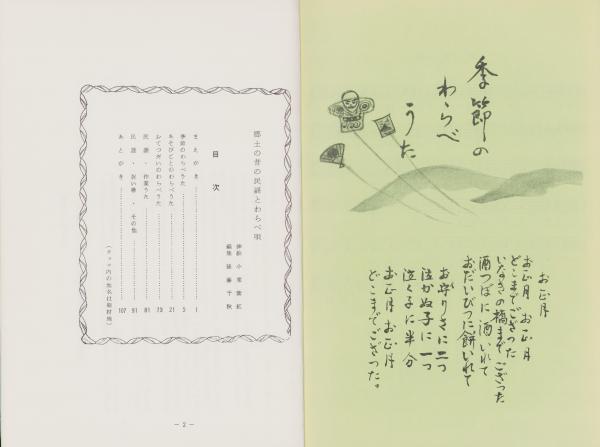 郷土の昔の民謡とわらべ唄
目次
まえがき 1
季節のわらべうた 3
あそびごとのわらべうた 21
おてつだいのわらべうた 73
民謡・作業うた 81
民謡・祝い唄・その他 91
あとがき 107
－2－
季節の
わらべ
うた
お正月
お正月 お正月
どこまでござった
いなきの橋までござった
酒つぼに酒いれて
おだいびつに餅いれて
お守りさに二つ
泣かぬ子に一つ
泣く子に半分
お正月 お正月
どこまでござった。